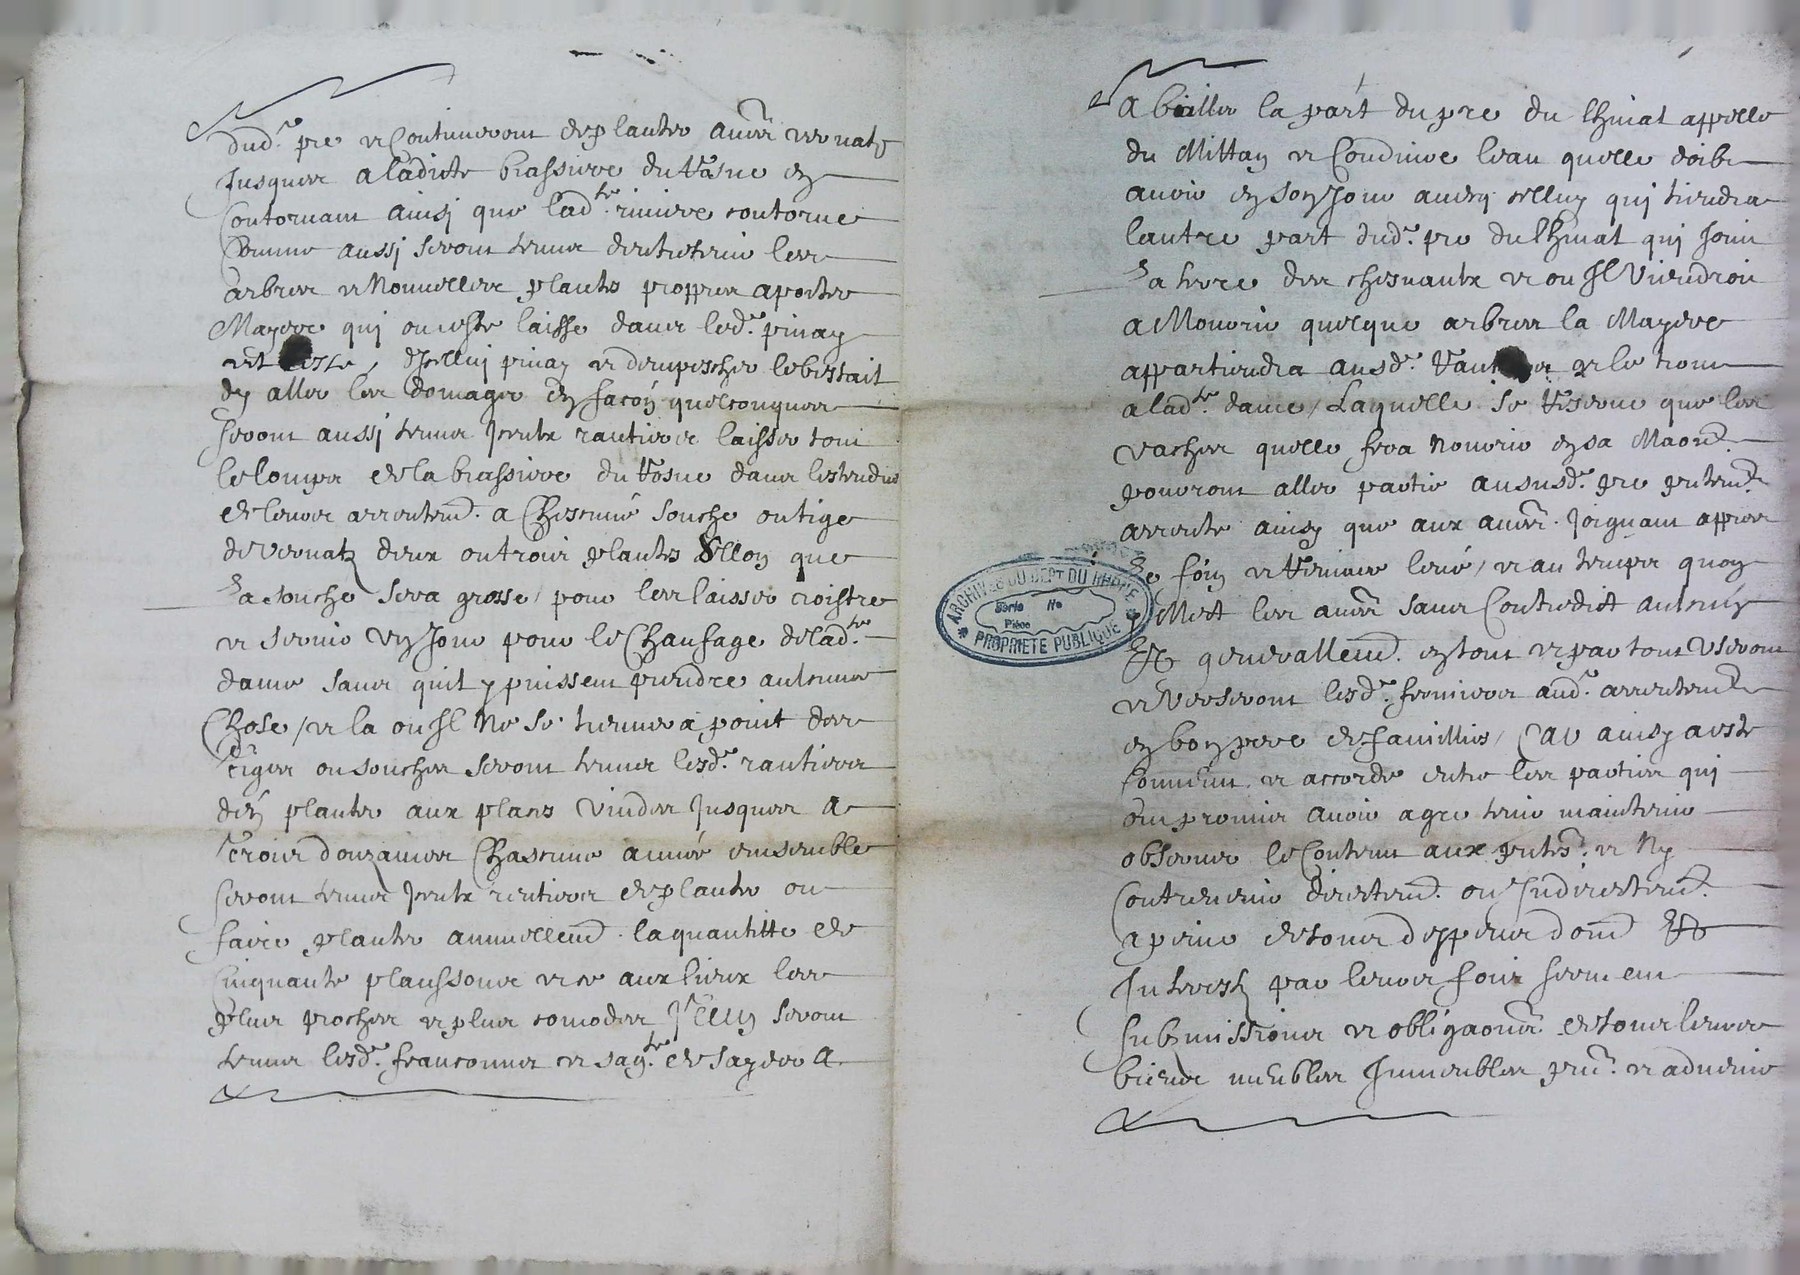 dud.e pre et Continueront de planter autres vernatz
Jusques a ladicte brassiere du Rosne en
Contornant ainsi que lad.te riviere contorne
Comme aussi seront tenus dentretenir les
arbres et Nouvelles plantes propres aporter
Mayere qui ou este laisse dans led.e pinay
et dempescher le bestail
dy aller les domager en façon quelconques
seront aussi tenus Jceulx rantiers laisser tout
le long de la brassiere du Rosne dans lestendue
de leurs arrentem.t a Chescune souche ou tige
de vernatz deux ou trois plantes sellon que
La souche sera grosse / pour les laisser croistre
et servir un Jour pour le Chaufage de lad.te
dame sans quil y puissent prendre aulcune
Chose / et la ou Jl Ne se tiennera point des
tiges ou souches seront tenus lesd.s rantiers
den planter aux places vuides Jusques a
trois douzaines Chascune année ensemble
seront tenus Jceulx rentiers de planter ou
faire planter annuellem.t la quantitte de
Cinquante plansons et ce aux lieux les
plus proches et plus comodes Jtem seront
tenus lesd.s franconnet et sag.te de sayer A
A bailler la part du pre du Chinat appelle
du Mittan et Conduire leau quelle doibt
avoir en son Jour avecq celluy qui tiendra
lautre part dud.e pre du Chinat qui Joint
La terre des chesnaulx et ou Jl viendroit
a Mourir quelque arbres la Mayere
appartiendra ausd.s et le tronc
a lad.te dame / Laquelle se Reserve que les
vaches quelle fera Nourrir en sa Maon
pouront aller paitre au susd.e pre
arrente ainsy que aux autres Joignant appres
Le foin et Reviure levé / et au temps quon
y Mect les autres sans Contredict aulcung
Et generallem.t en tout et par tout useront
et verseront lesd.s fermiers aud.e arrentem.t
en bon pere de famillie / Car ainsy a este
Convenu et accorde entre les parties qui
ont promis avoir agre tenir maintenir
observer le Contenu aux p.ntes et Ny
Contrevenir directem.t ou Indirectem.t
a peine de tous despens dom.s Et
Jnterestz par leurs foix serment
submissions et obligaons de tous leurs
biens meubles Jmmeubles p.ns et advenir
ARCHIVES DU DEPT DU RHONE
Série No
Pièce
PROPRIETE PUBLIQUE